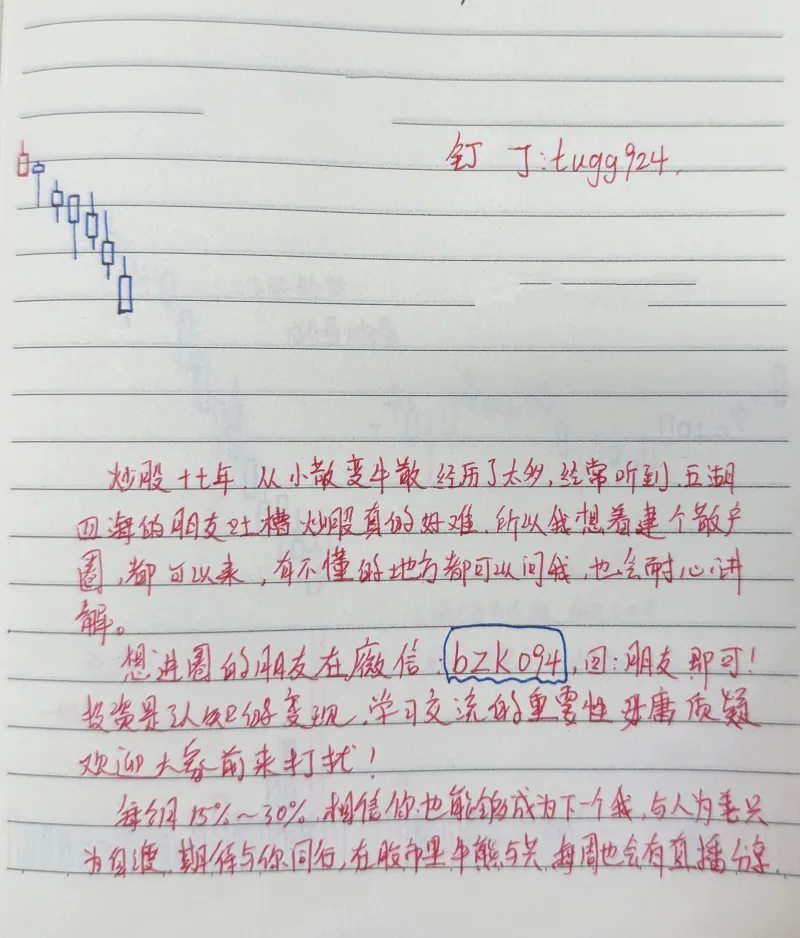 钉 丁:tugg924.
炒股十七年 从小散变牛散 经历了太多,经常听到 五湖
四海的朋友吐槽炒股真的好难.所以我想着建个散户
圈,都可以来,有不懂的地方都可以问我,也会耐心讲
解。
想进圈的朋友在薇信:bzk094,回:朋友即可!
投资是认知的变现.学习交流的重要性毋庸质疑
欢迎大家前来打扰!
每个月15%~30%,相信你也能够成为下一个我,与人为善只
为自渡.期待与你同行,在股市里牛熊与共 每周也会有直播分享